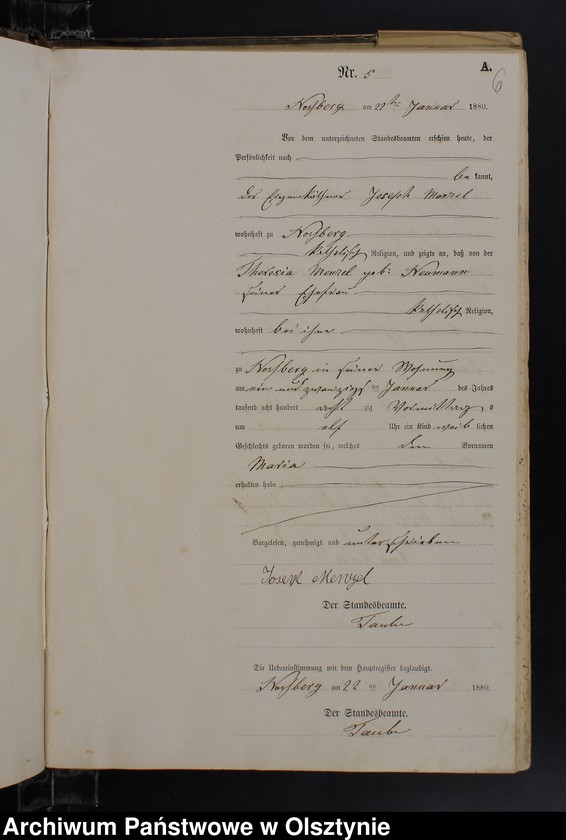 A.
Nr. 5
6
am 22ten Januar 1880.
Vor dem unterzeichneten Standesbeamten erschien heute, der
Persönlichkeit nach
bekannt,
der Eigenkäthner Joseph Menzel
wohnhaft zu
katholischer Religion, und zeigte an, daß von der
Theresia Menzel geb. Neumann
seiner Ehefrau
katholischer Religion,
wohnhaft bei ihm
zu in seiner Wohnung
am ein und zwanzigsten Januar des Jahres
tausend acht hundert achtzig Vormittags
um elf Uhr ein Kind weiblichen
Geschlechts geboren worden sei, welches den Vornamen
Maria
erhalten habe
Vorgelesen, genehmigt und unterschrieben
Josep Menzel
Der Standesbeamte.
Taube
Die Uebereinstimmung mit dem Hauptregister beglaubigt.
am 22 ten Januar 1880.
Der Standesbeamte.
Taube
Archiwum Państwowe w Olsztynie